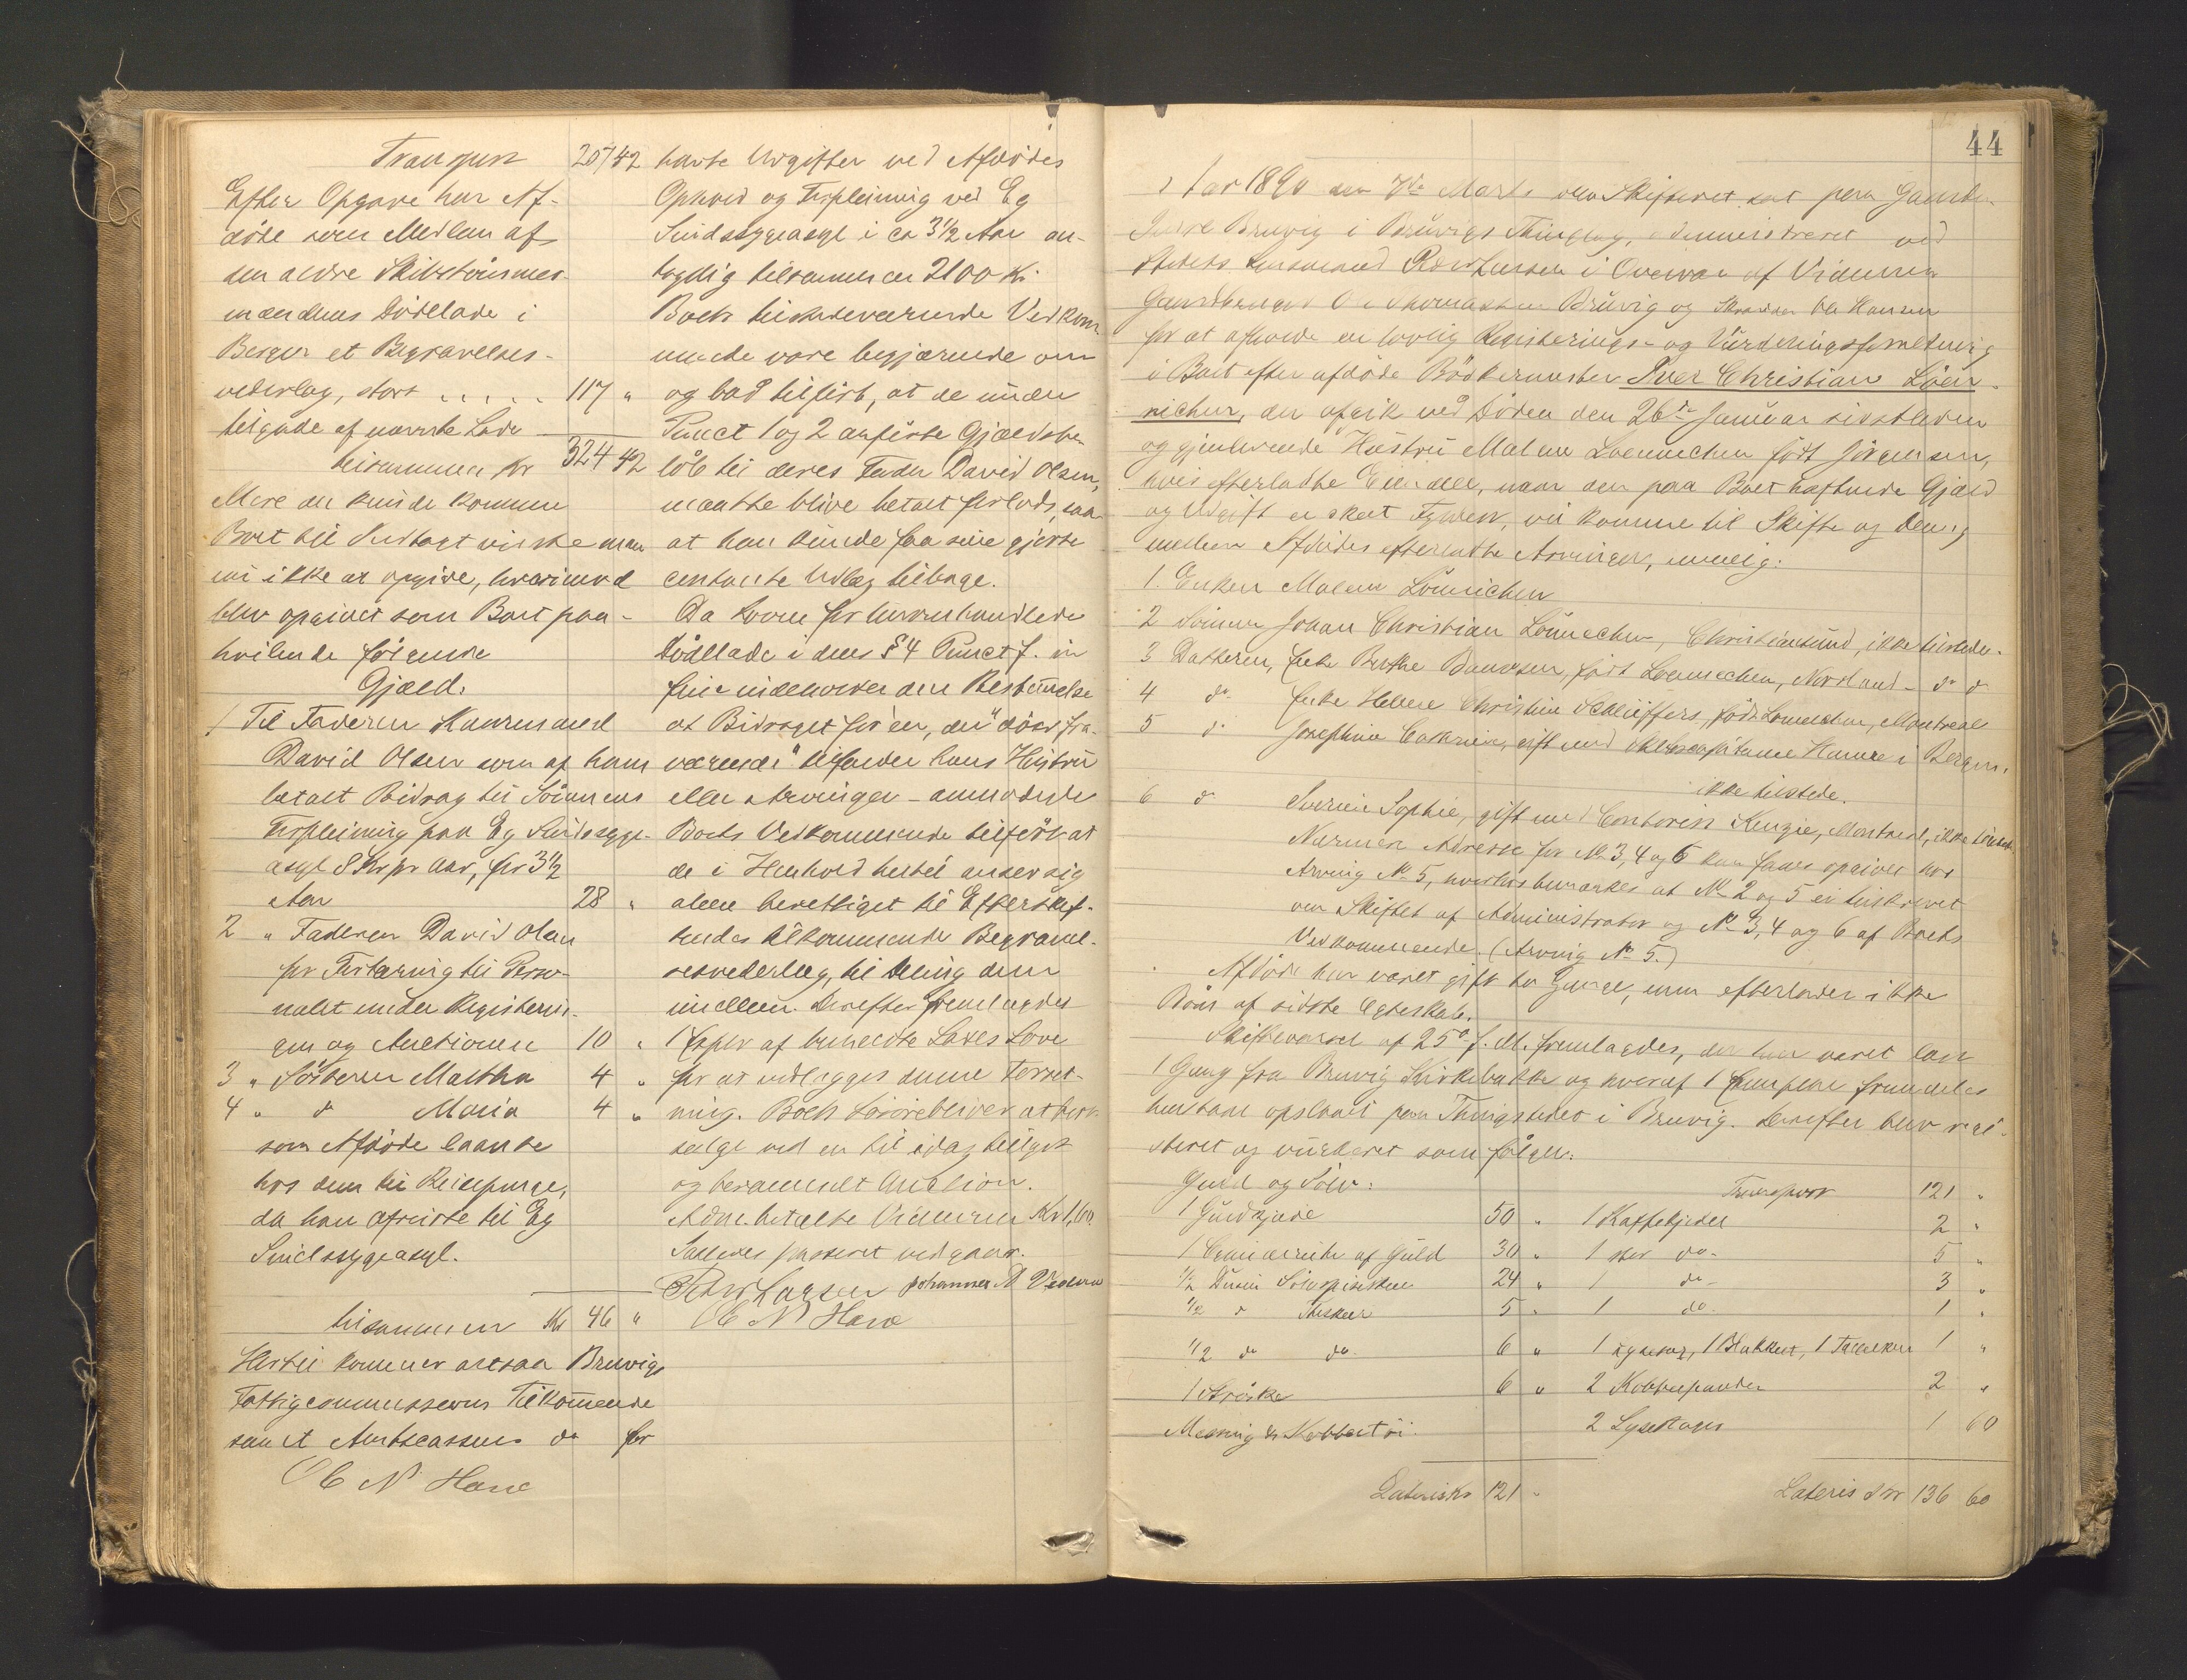 Transport 207 42
Efter Opgave har Af-
døde som Medlem af
den ældre Skibstømmer-
mændenes Dødlade i
Bergen et Begravelses-
vederlag, stort . . . . . 117 "
tilgode af nævnte Lade
tilsammen Kr 324 42
Mere der kunde komme
Boet til Indtægt vidste man
nu ikke at opgive, hvorimod
blev opgivet som Boet paa-
hvilende følgende
Gjæld.
1 Til Faderen Kaarmand
David Olsen som af ham
betalt Bidrag til Sønnens
Forpleining paa Eg Sindssyge-
asyl 8 Kr pr Aar, for 3½
Aar 28 "
2 " Faderen David Olsen
for Fortæring til Perso-
nalet under Registerin-
gen og Auctionen 10 "
3 " Søsteren Martha 4 "
4 " do Maria 4 "
som Afdøde laante
hos dem til Reisepenge,
da han afreiste til Eg
Sindssygeasyl.
tilsammen Kr 46 "
Hertil kommer ogsaa Bruvigs
Fattigcommissions Tilkommende
samt Amtscassens do for
O N Hane
havte Udgifter ved Afdødes
Ophold og Forpleining ved Eg
Sindssygeasyl i ca 3½ Aar an-
tagelig tilsammen 2100 Kr.
Boets tilstedeværende Vedkom-
mende vare begjærende om
og bad tilført, at de under
Punct 1 og 2 anførte Gjældsbe-
løb til deres Fader David Olsen,
maatte blive betalt forlods, saa
at han kunde faa sine gjorte
contante Udlæg tilbage.
Da Lovene for havnnævnte
Dødlade i dens § 4 Punct f. in
fine indeholder den Bestemmelse
at Bidraget for en, der "døer fra-
værende" tilfalder hans Hustru
eller Arvinger - anmodede
Boets Vedkommende tilført at
de i Henhold hertil anser sig
alene berettiget til Efterskif-
tendes tilkommende Begravel-
sesvederlag, til Deling dem
imellem. Derefter fremlagdes
1 Explr af bemeldte Lades Love
for at vedlægges denne Forret-
ning. Boets Løsøre bliver at bort-
sælge ved en til idag tillyst
og berammet Auction.
Adm. betalte Vidnerne Kr 1,60.
Saaledes passeret vedgaaes.
R Larsen Johannes A Vedum
O N Hane
44
Aar 1890 den 7de Marts blev Skifteret sat paa Gaarden
Indre Bruvig i Bruvigs Thinglag, administreret ved
Stedets Lensmand R Larsen i Overvær af Vidnerne
Gaardbruger O Thomassen Bruvig og Skrædder Ole Hansen
for at afholde en lovlig Registerings- og Vurderingsforretning
i Boet efter afdøde Bødkermester Iver Christian Løen-
nichen, der afgik ved Døden den 26de Januar sidstleden
og gjenlevende Hustru Malene Loennechen født Jørgensen,
hvis efterladte Eiendele, naar den paa Boet hæftende Gjæld
og Udgift er skeet Fyldest, vil komme til Skifte og Deling
mellem Afdødes efterladte Arvinger, nemlig:
1. Enken Malene Lønnichen
2 Sønnen Johan Christian Lönnechen, Christiansund, ikke tilstede.
3 Datteren, Enke Berthe Danielsen, født Loennechen, Nordland - do do
4 do Enke Helene Christine Schlüffers, født Lønnechen, Montreal
5 do Josephine Cathrine, gift med Skibscapitaine Hamre i Bergen,
ikke tilstede.
6 do Sverine Sophie, gift med Contorist Kenzie, Montreal, ikke tilstede.
Nærmere Adresse for No 3, 4 og 6 kan faaes opgivet hos
Arving No 5, hvorhos bemærkes at No 2 og 5 er tilskrevet
om Skiftet af Administrator og No 3, 4 og 6 af Boets
Vedkommende. (Arving No 5.)
Afdøde har været gift to Gange, men efterlader ikke
Børn af sidste Egteskab.
Skiftevarsel af 25de f. M. fremlagdes, der har været læst
1 Gang fra Bruvig Kirkebakke og hvoraf 1 Exemplar fremdeles
henstaar opslaaet paa Thingstedet i Bruvig. Derefter blev regi-
steret og vurderet som følger:
Guld og Sølv:
1 Guldkjede 50 "
1 Cylinderuhr af Guld 30 "
½ Dusin Sølvspiseskeer 24 "
½ do Theskeer 5 "
½ do do. 6 "
1 Strøske 6 "
Messing & Kobbertøi.
Lateris Kr 121 "
Transport 121 "
1 Kaffekjedel 2 "
1 stor do. 5 "
1 do. 3 "
1 do. 1 "
1 Lysesax, 1 Blækhus, 1 Tallerken 1 "
2 Kobberpander 2 "
2 Lysestager 1 60
Lateris Kr 136 60